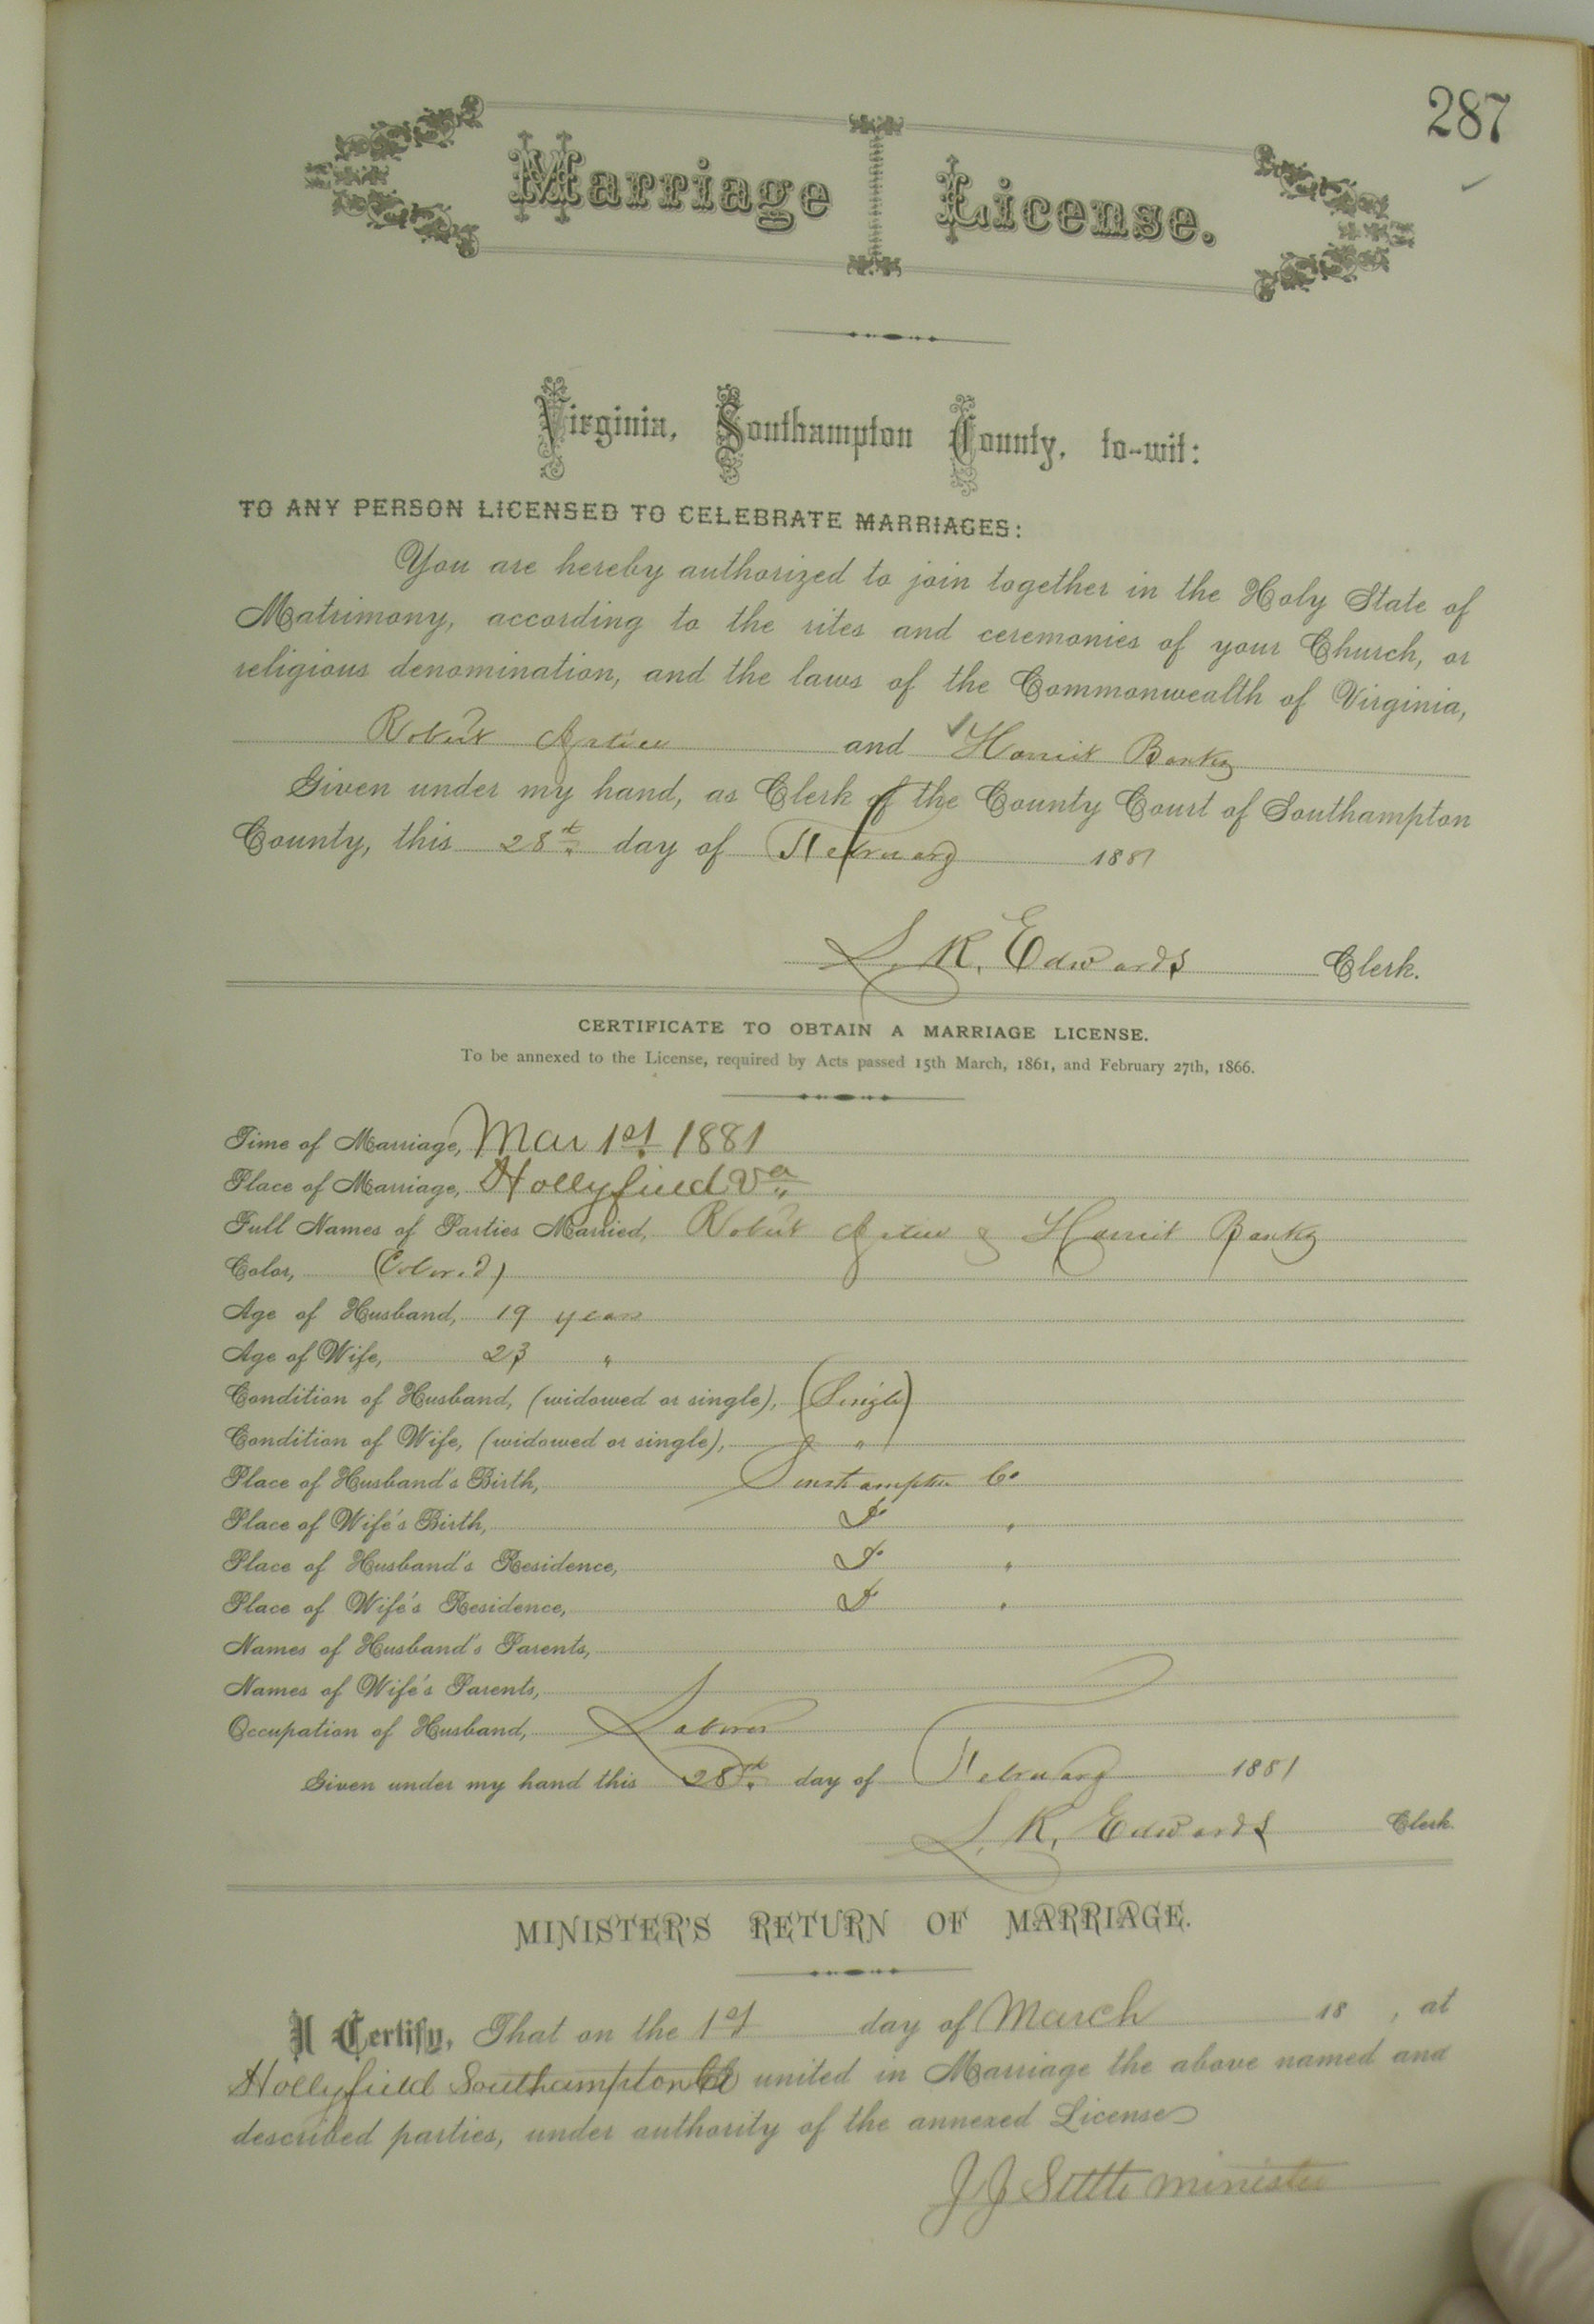 287
Marriage License.
Virginia, Southampton County, to-wit:
TO ANY PERSON LICENSED TO CELEBRATE MARRIAGES:
You are hereby authorized to join together in the Holy State of
Matrimony, according to the rites and ceremonies of your Church, or
religious denomination, and the laws of the Commonwealth of Virginia,
Robert and Harriet Banks
Given under my hand, as Clerk of the County Court of Southampton
County, this 28th day of February 1881
L. R. Edwards Clerk.
CERTIFICATE TO OBTAIN A MARRIAGE LICENSE.
To be annexed to the License, required by Acts passed 15th March, 1861, and February 27th, 1866.
Time of Marriage, Mar 1st 1881
Place of Marriage, Hollyfield Va
Full Names of Parties Married, Robert & Harriet Banks
Color, (Colored)
Age of Husband, 19 years
Age of Wife, 23 "
Condition of Husband, (widowed or single), (Single)
Condition of Wife, (widowed or single), "
Place of Husband's Birth, Southampton Co
Place of Wife's Birth, Do "
Place of Husband's Residence, Do "
Place of Wife's Residence, Do "
Names of Husband's Parents,
Names of Wife's Parents,
Occupation of Husband, Laborer
Given under my hand this 28th day of February 1881
L. R. Edwards Clerk.
MINISTER'S RETURN OF MARRIAGE.
I Certify, That on the 1st day of March 18 , at
Hollyfield Southampton Co united in Marriage the above named and
described parties, under authority of the annexed License
J J Settle minister